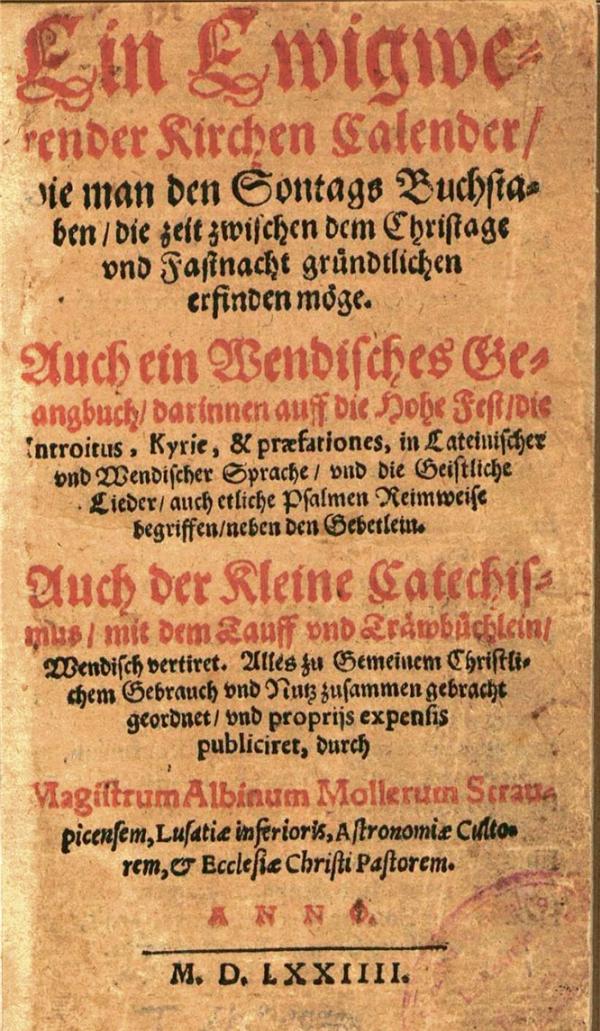 Ein Ewigwe-
render Kirchen Calender/
wie man den Sontags Buchsta-
ben / die zeit zwischen dem Christage
vnd Fastnacht gründtlichen
erfinden möge.
Auch ein Wendisches Ge-
sangbuch/ darinnen auff die Hohe Fest/die
Introitus, Kyrie, & præfationes, in Lateinischer
vnd Wendischer Sprache / vnd die Geistliche
Lieder/ auch etliche Psalmen Reimweise
begriffen/neben den Gebetlein.
Auch der Kleine Catechis-
mus / mit dem Tauff vnd Träwbüchlein/
Wendisch vertiret. Alles zu Gemeinem Christli-
chem Gebrauch vnd Nutz zusammen gebracht
geordnet/ vnd proprijs expensis
publiciret, durch
Magistrum Albinum Mollerum Strau-
picensem, Lusatiæ inferioris, Astronomiæ Culto-
rem, & Ecclesiæ Christi Pastorem.
ANNO.
M. D. LXXIIII.